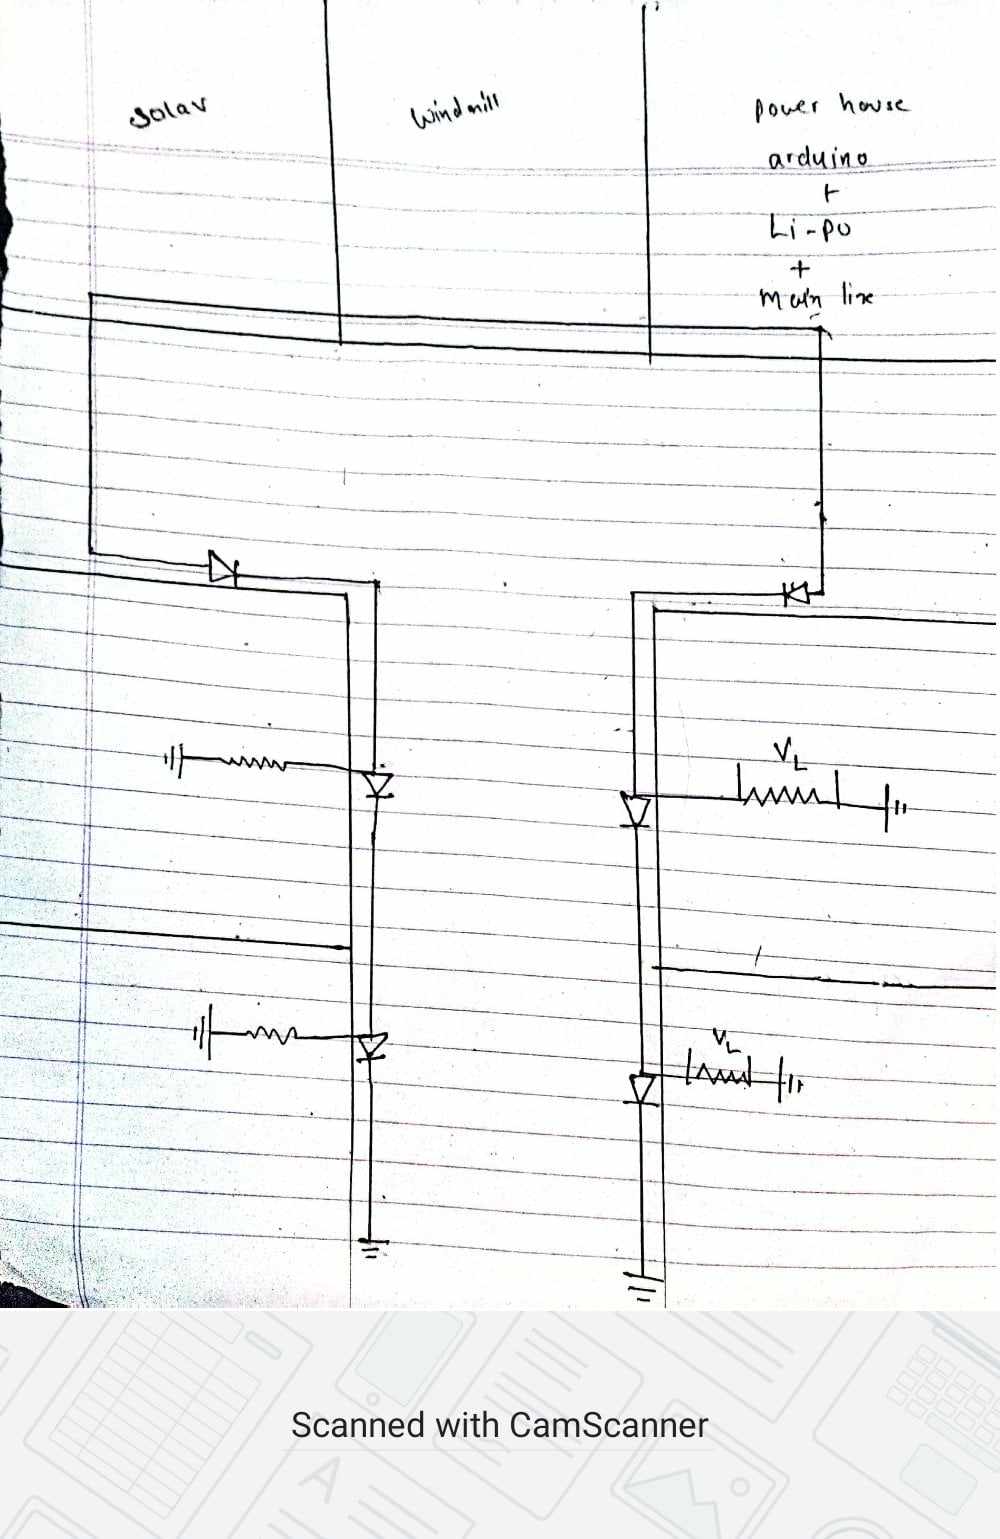 Solar
Windmill
Power house
arduino
+
Li-po
+
main line
VL
VL
Scanned with CamScanner